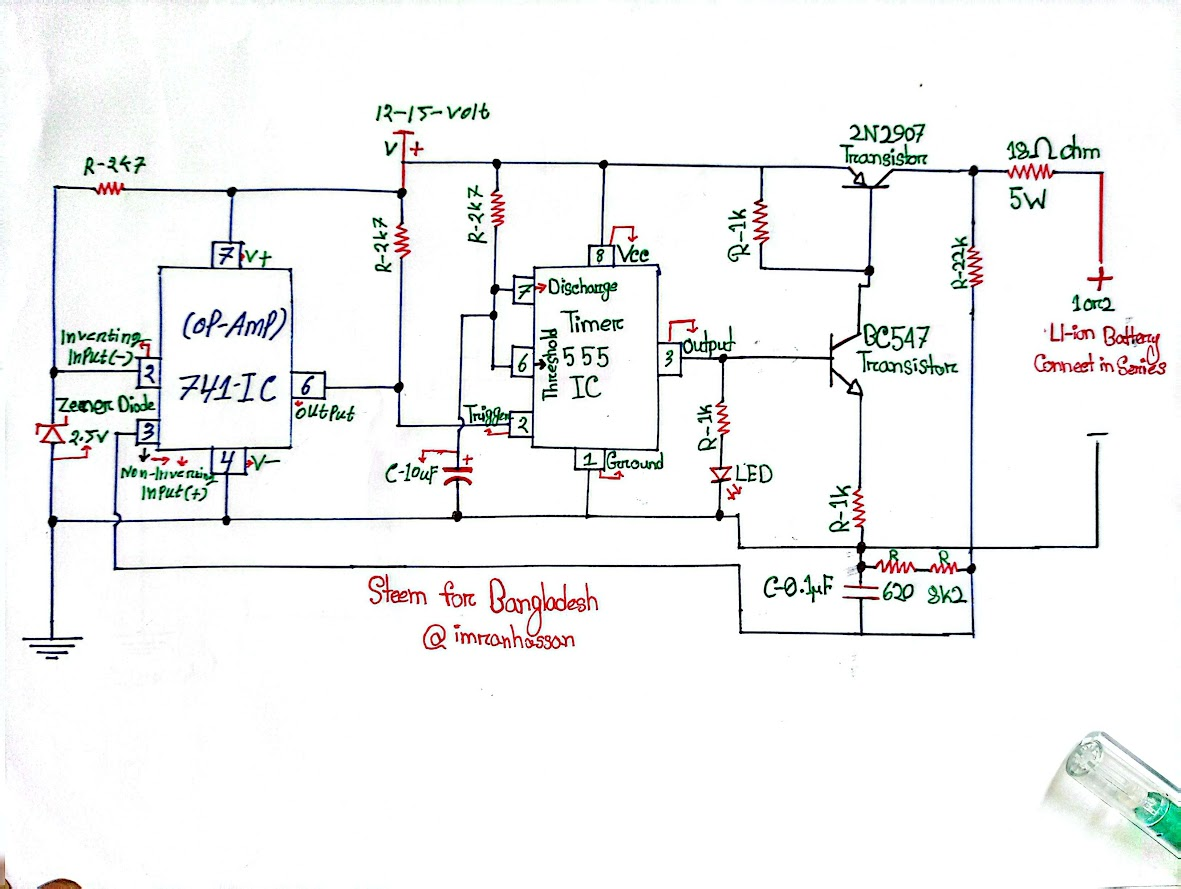 12-15-volt
V +
2N2907
Transistor
18Ω ohm
5W
R-2k7
R-2k7
R-2k7
R-1k
R-22k
7 V+
8 Vcc
+
1or2
LI-ion Battery
Connect in Series
(OP-AmP)
741-IC
Inverting
InPut(-)
2
Zener Diode
2.5V
3
Non-Inverting
InPut(+)
4 V-
6
OUtPut
7 Discharge
Timer
555
IC
6 Threshold
Trigger 2
3 Output
1 Ground
BC547
Transistor
C-10uF
+
R-1k
LED
R-1k
R R
C-0.1µF
620 8k2
Steem for Bangladesh
@imranhassan